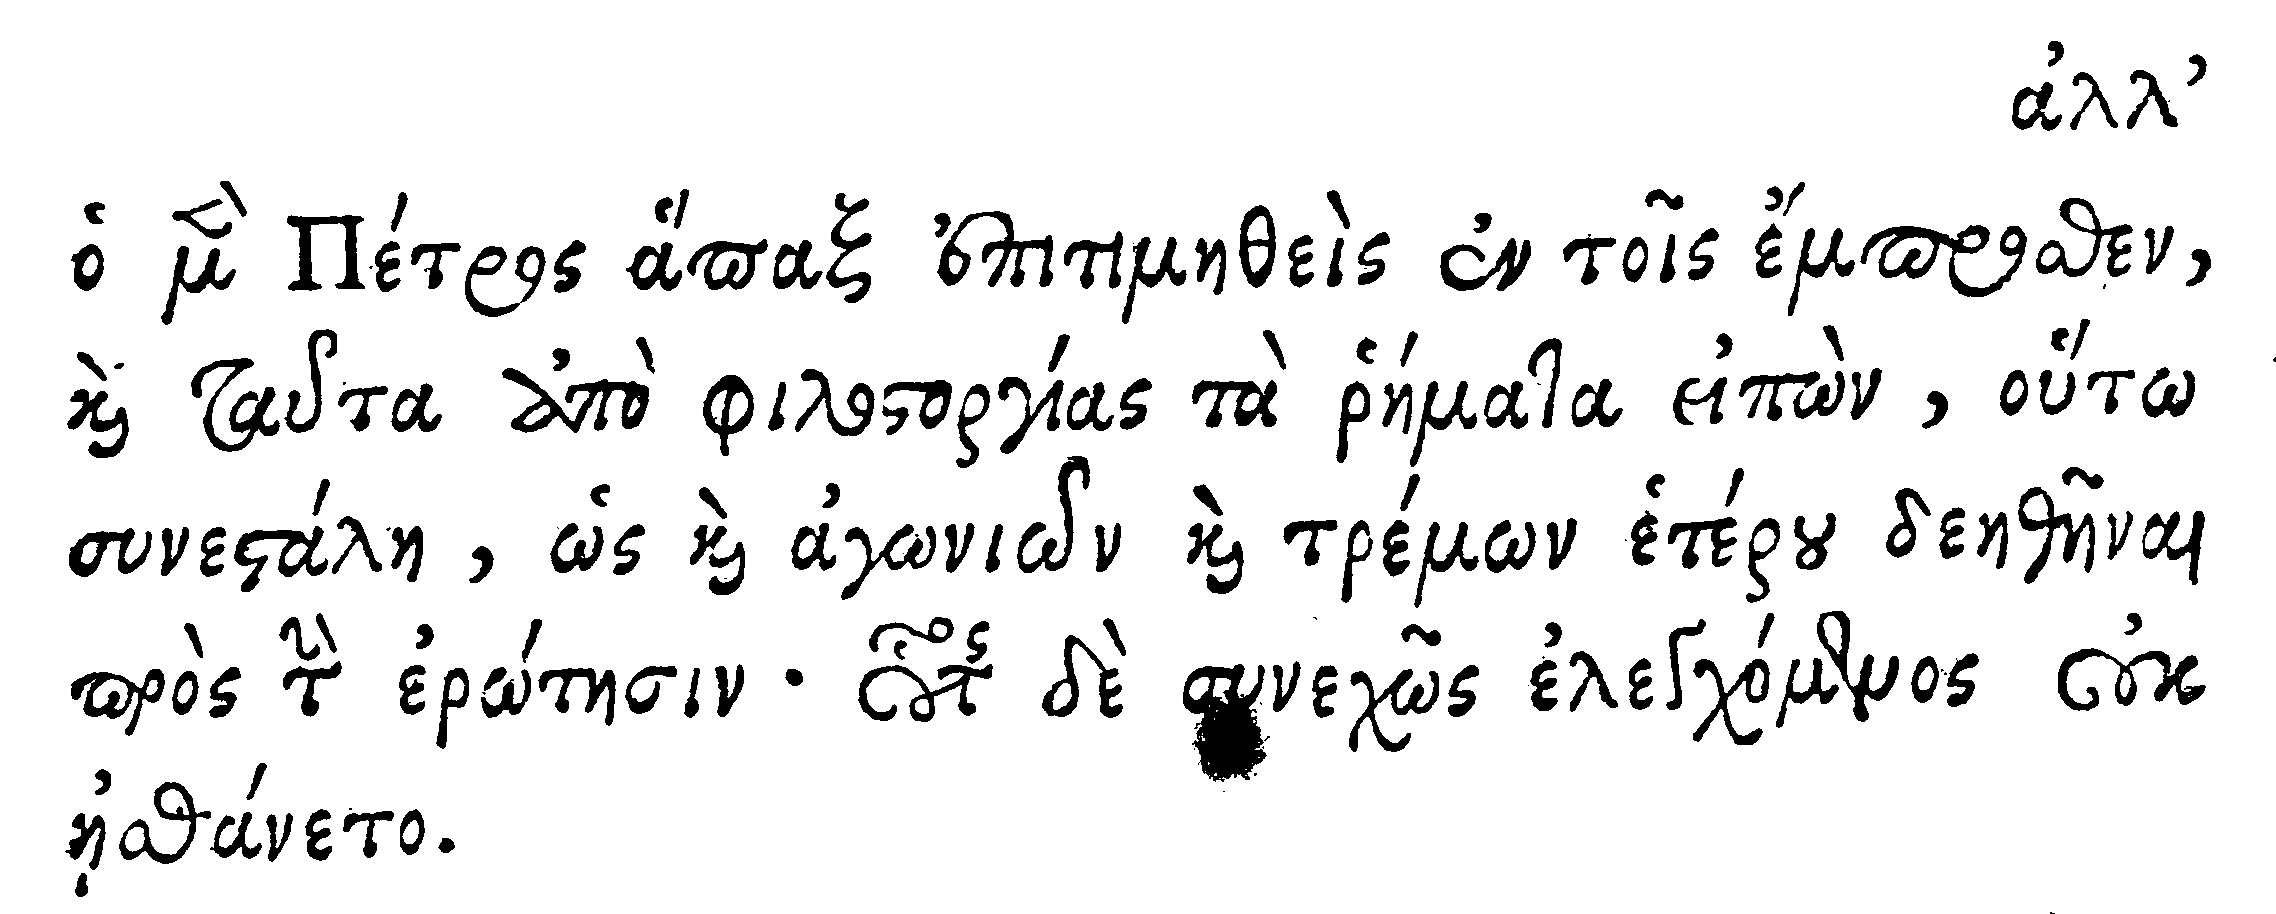 ἀλλ'
ὁ μὲν Πέτρος ἅπαξ ἐπιτιμηθεὶς ἐν τοῖς ἔμπροσθεν,
καὶ ταῦτα ἀπὸ φιλοστοργίας τὰ ῥήματα εἰπὼν, οὕτω
συνεστάλη, ὡς καὶ ἀγωνιῶν καὶ τρέμων ἑτέρου δεηθῆναι
πρὸς τὴν ἐρώτησιν· οὗτος δὲ συνεχῶς ἐλεγχόμενος οὐκ
ᾐσθάνετο.